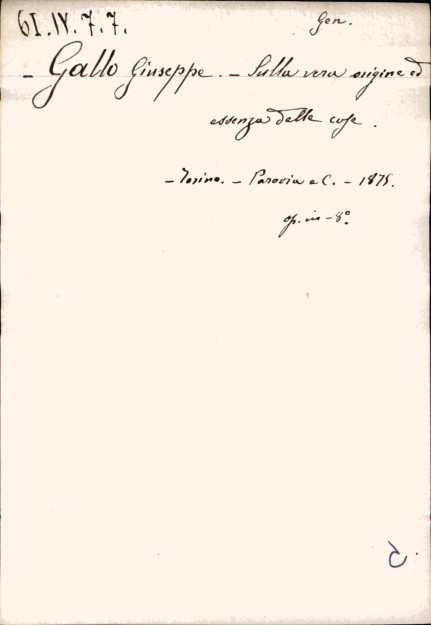 61.IV.7.7.
Gen.
- Gallo Giuseppe. - Sulla vera origine ed
essenza delle cose.
- Torino. - Paravia e C. - 1875.
op. in-8°.